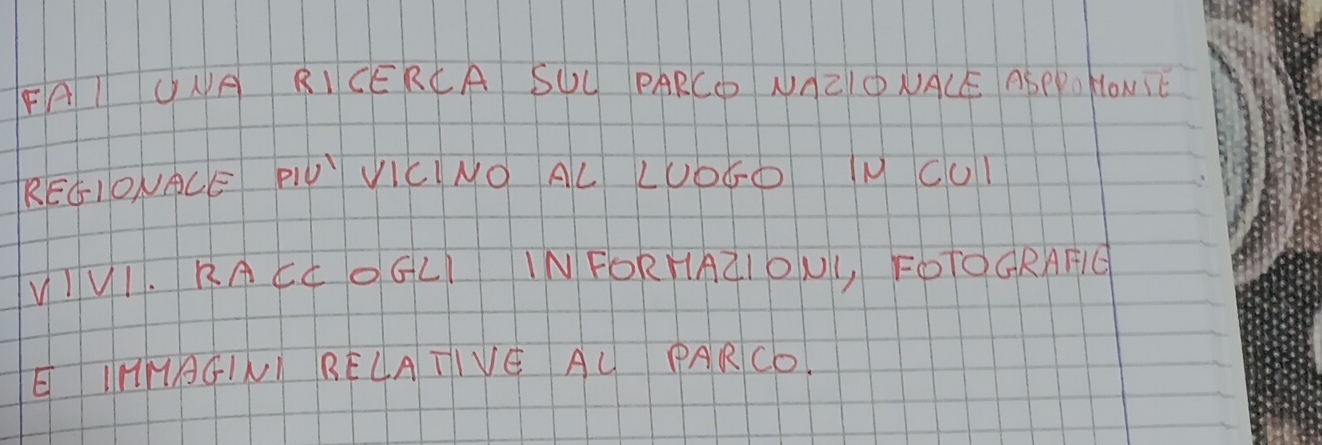 FAI UNA RICERCA SUL PARCO NAZIONALE ASPROMONTE
REGIONALE PIU' VICINO AL LUOGO IN CUI
VIVI. RACCOGLI INFORMAZIONI, FOTOGRAFIE
E IMMAGINI RELATIVE AL PARCO.